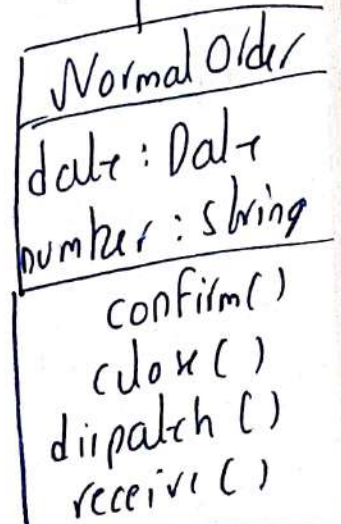 Normal Order
date : Date
number : string
confirm()
close()
dispatch()
receive()